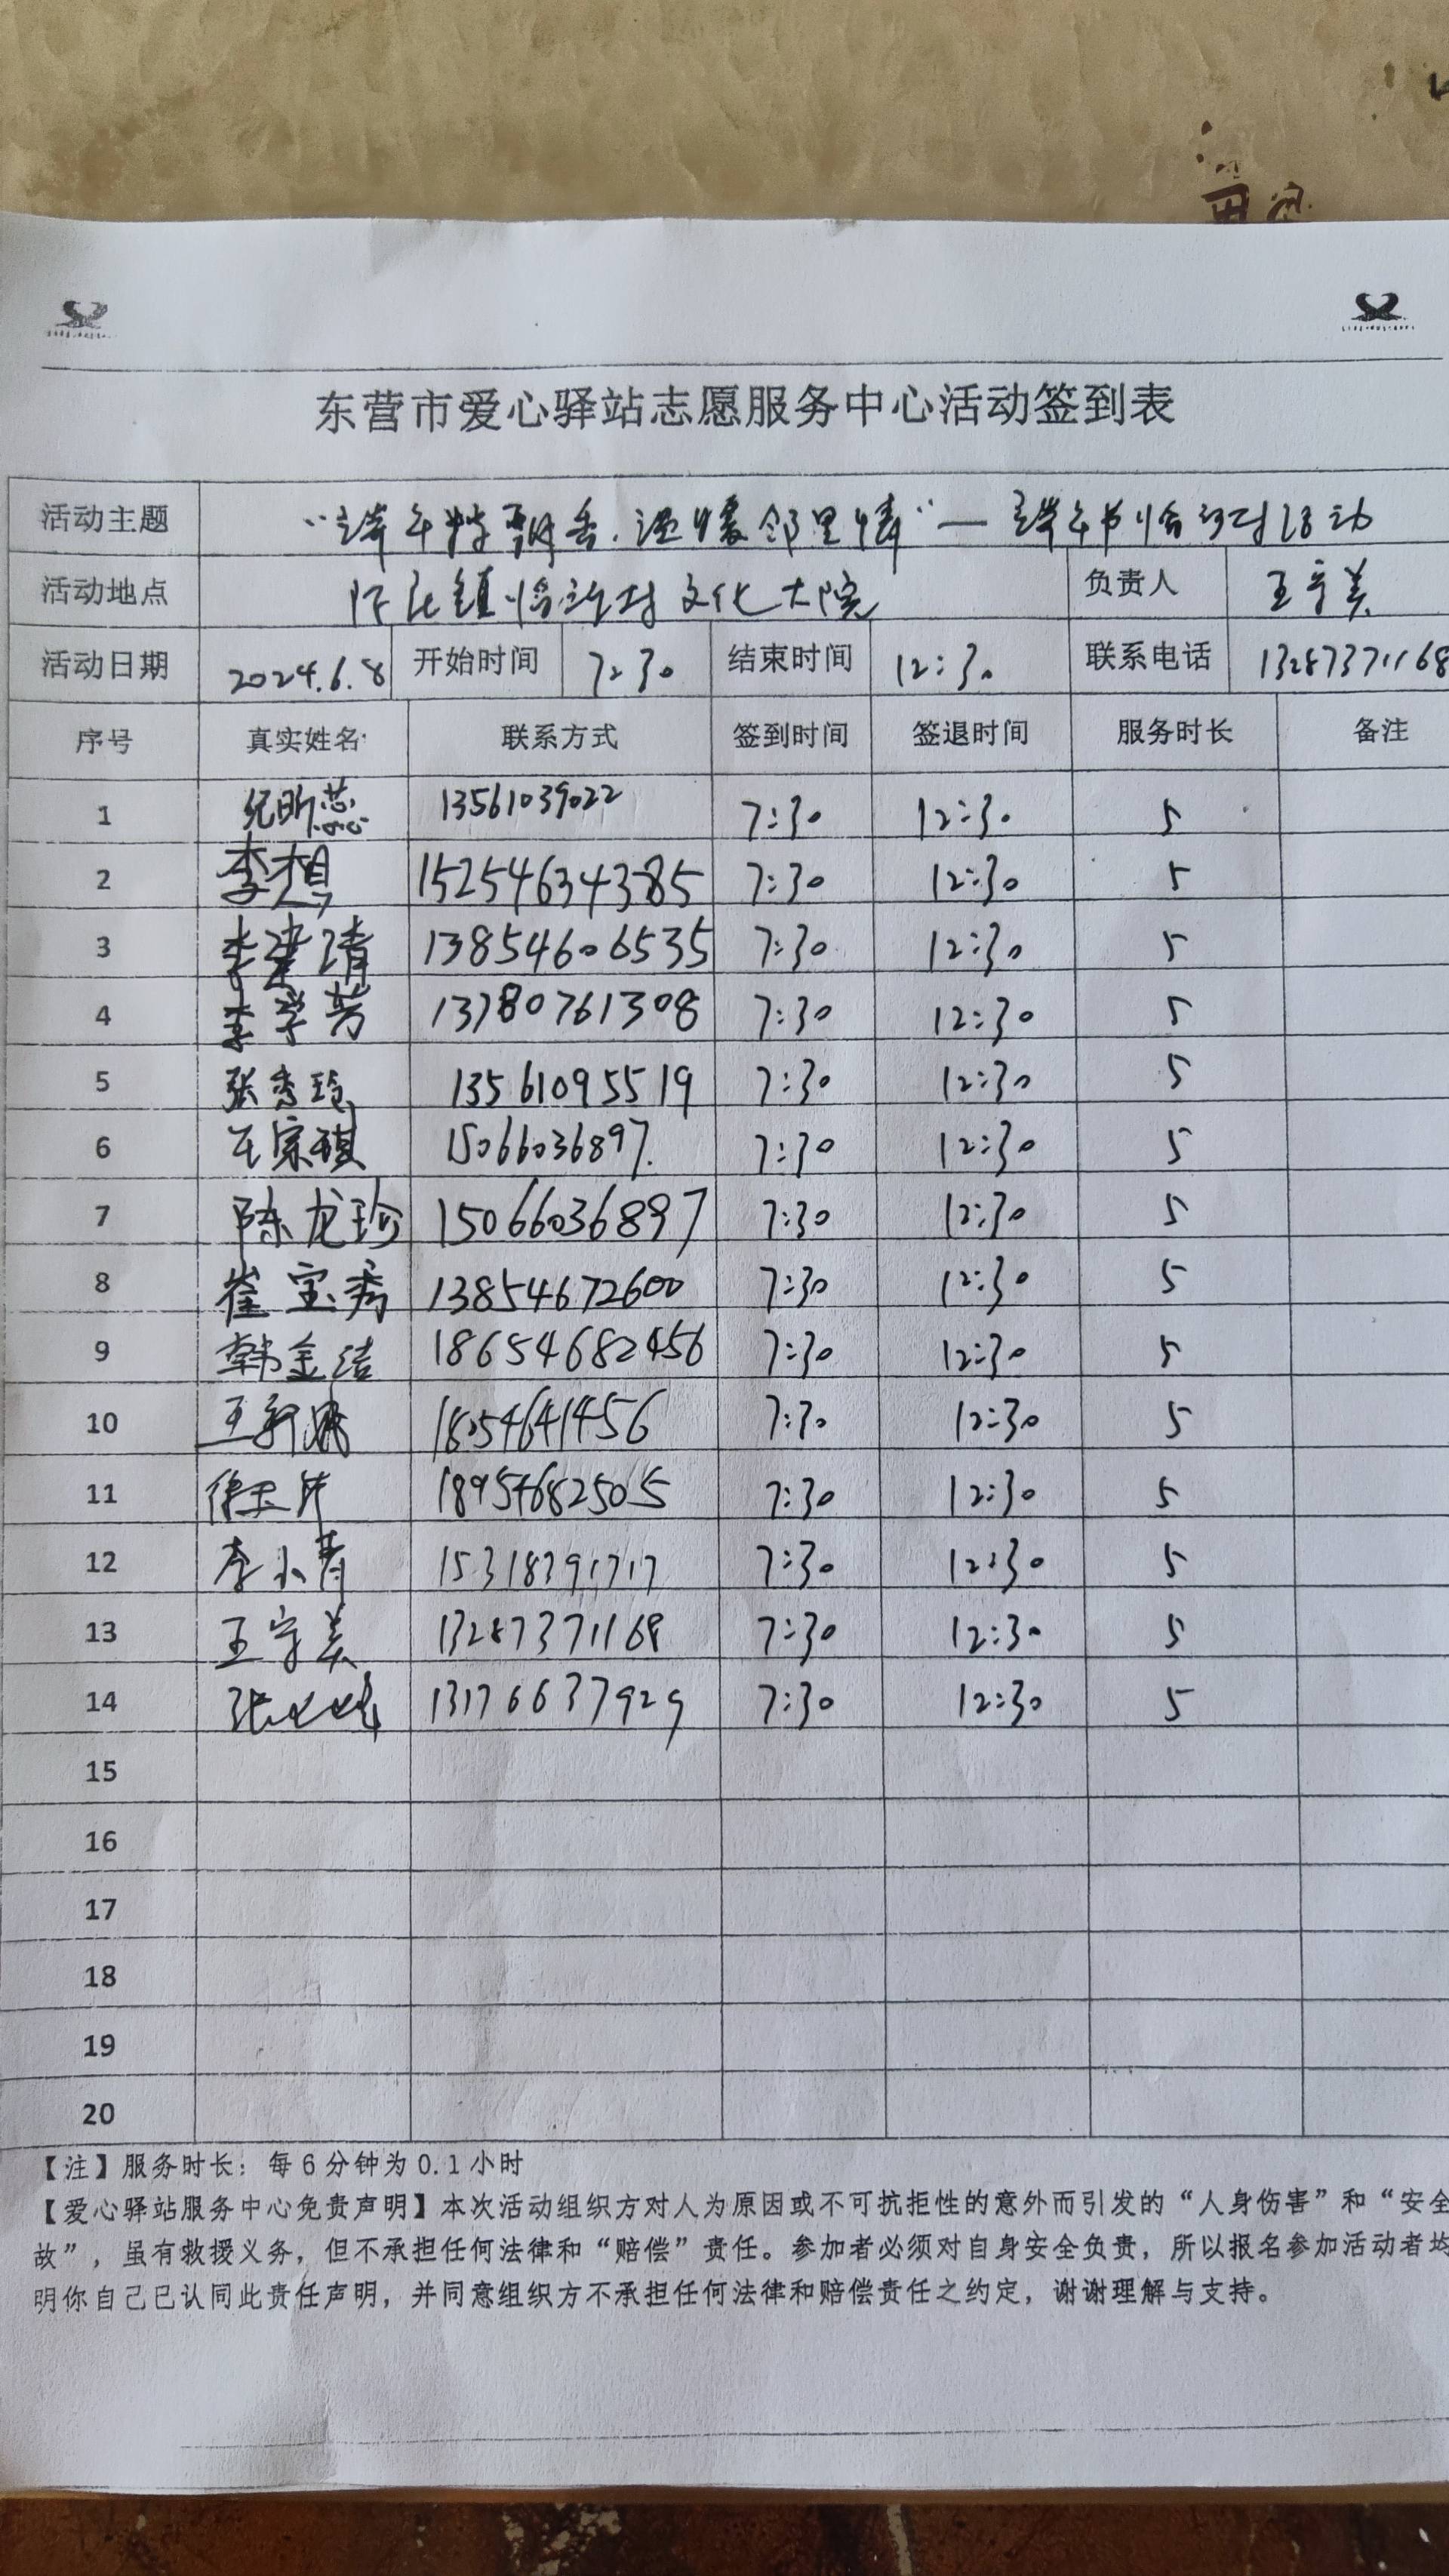 东营市爱心驿站志愿服务中心活动签到表
活动主题 “端午粽飘香.温暖邻里情”—端午节活动
活动地点 陈庄镇村文化大院 负责人 王守美
活动日期 2024.6.8 开始时间 7:30 结束时间 12:30 联系电话 13287371168
序号 真实姓名 联系方式 签到时间 签退时间 服务时长 备注
1 纪昕蕊 13561039022 7:30 12:30 5
2 李想 15254634385 7:30 12:30 5
3 李清 13854606535 7:30 12:30 5
4 李学芳 13780761308 7:30 12:30 5
5 张秀玲 13561095519 7:30 12:30 5
6 王宗琪 15066036897. 7:30 12:30 5
7 陈龙珍 15066036897 7:30 12:30 5
8 崔宝秀 13854672600 7:30 12:30 5
9 韩金洁 18654682456 7:30 12:30 5
10 王 18054641456 7:30 12:30 5
11 徐玉 18954682505 7:30 12:30 5
12 李小青 15318391717 7:30 12:30 5
13 王守美 13287371168 7:30 12:30 5
14 张 13176637929 7:30 12:30 5
15
16
17
18
19
20
【注】服务时长：每6分钟为0.1小时
【爱心驿站服务中心免责声明】本次活动组织方对人为原因或不可抗拒性的意外而引发的“人身伤害”和“安全
故”，虽有救援义务，但不承担任何法律和“赔偿”责任。参加者必须对自身安全负责，所以报名参加活动者均
明你自己已认同此责任声明，并同意组织方不承担任何法律和赔偿责任之约定，谢谢理解与支持。